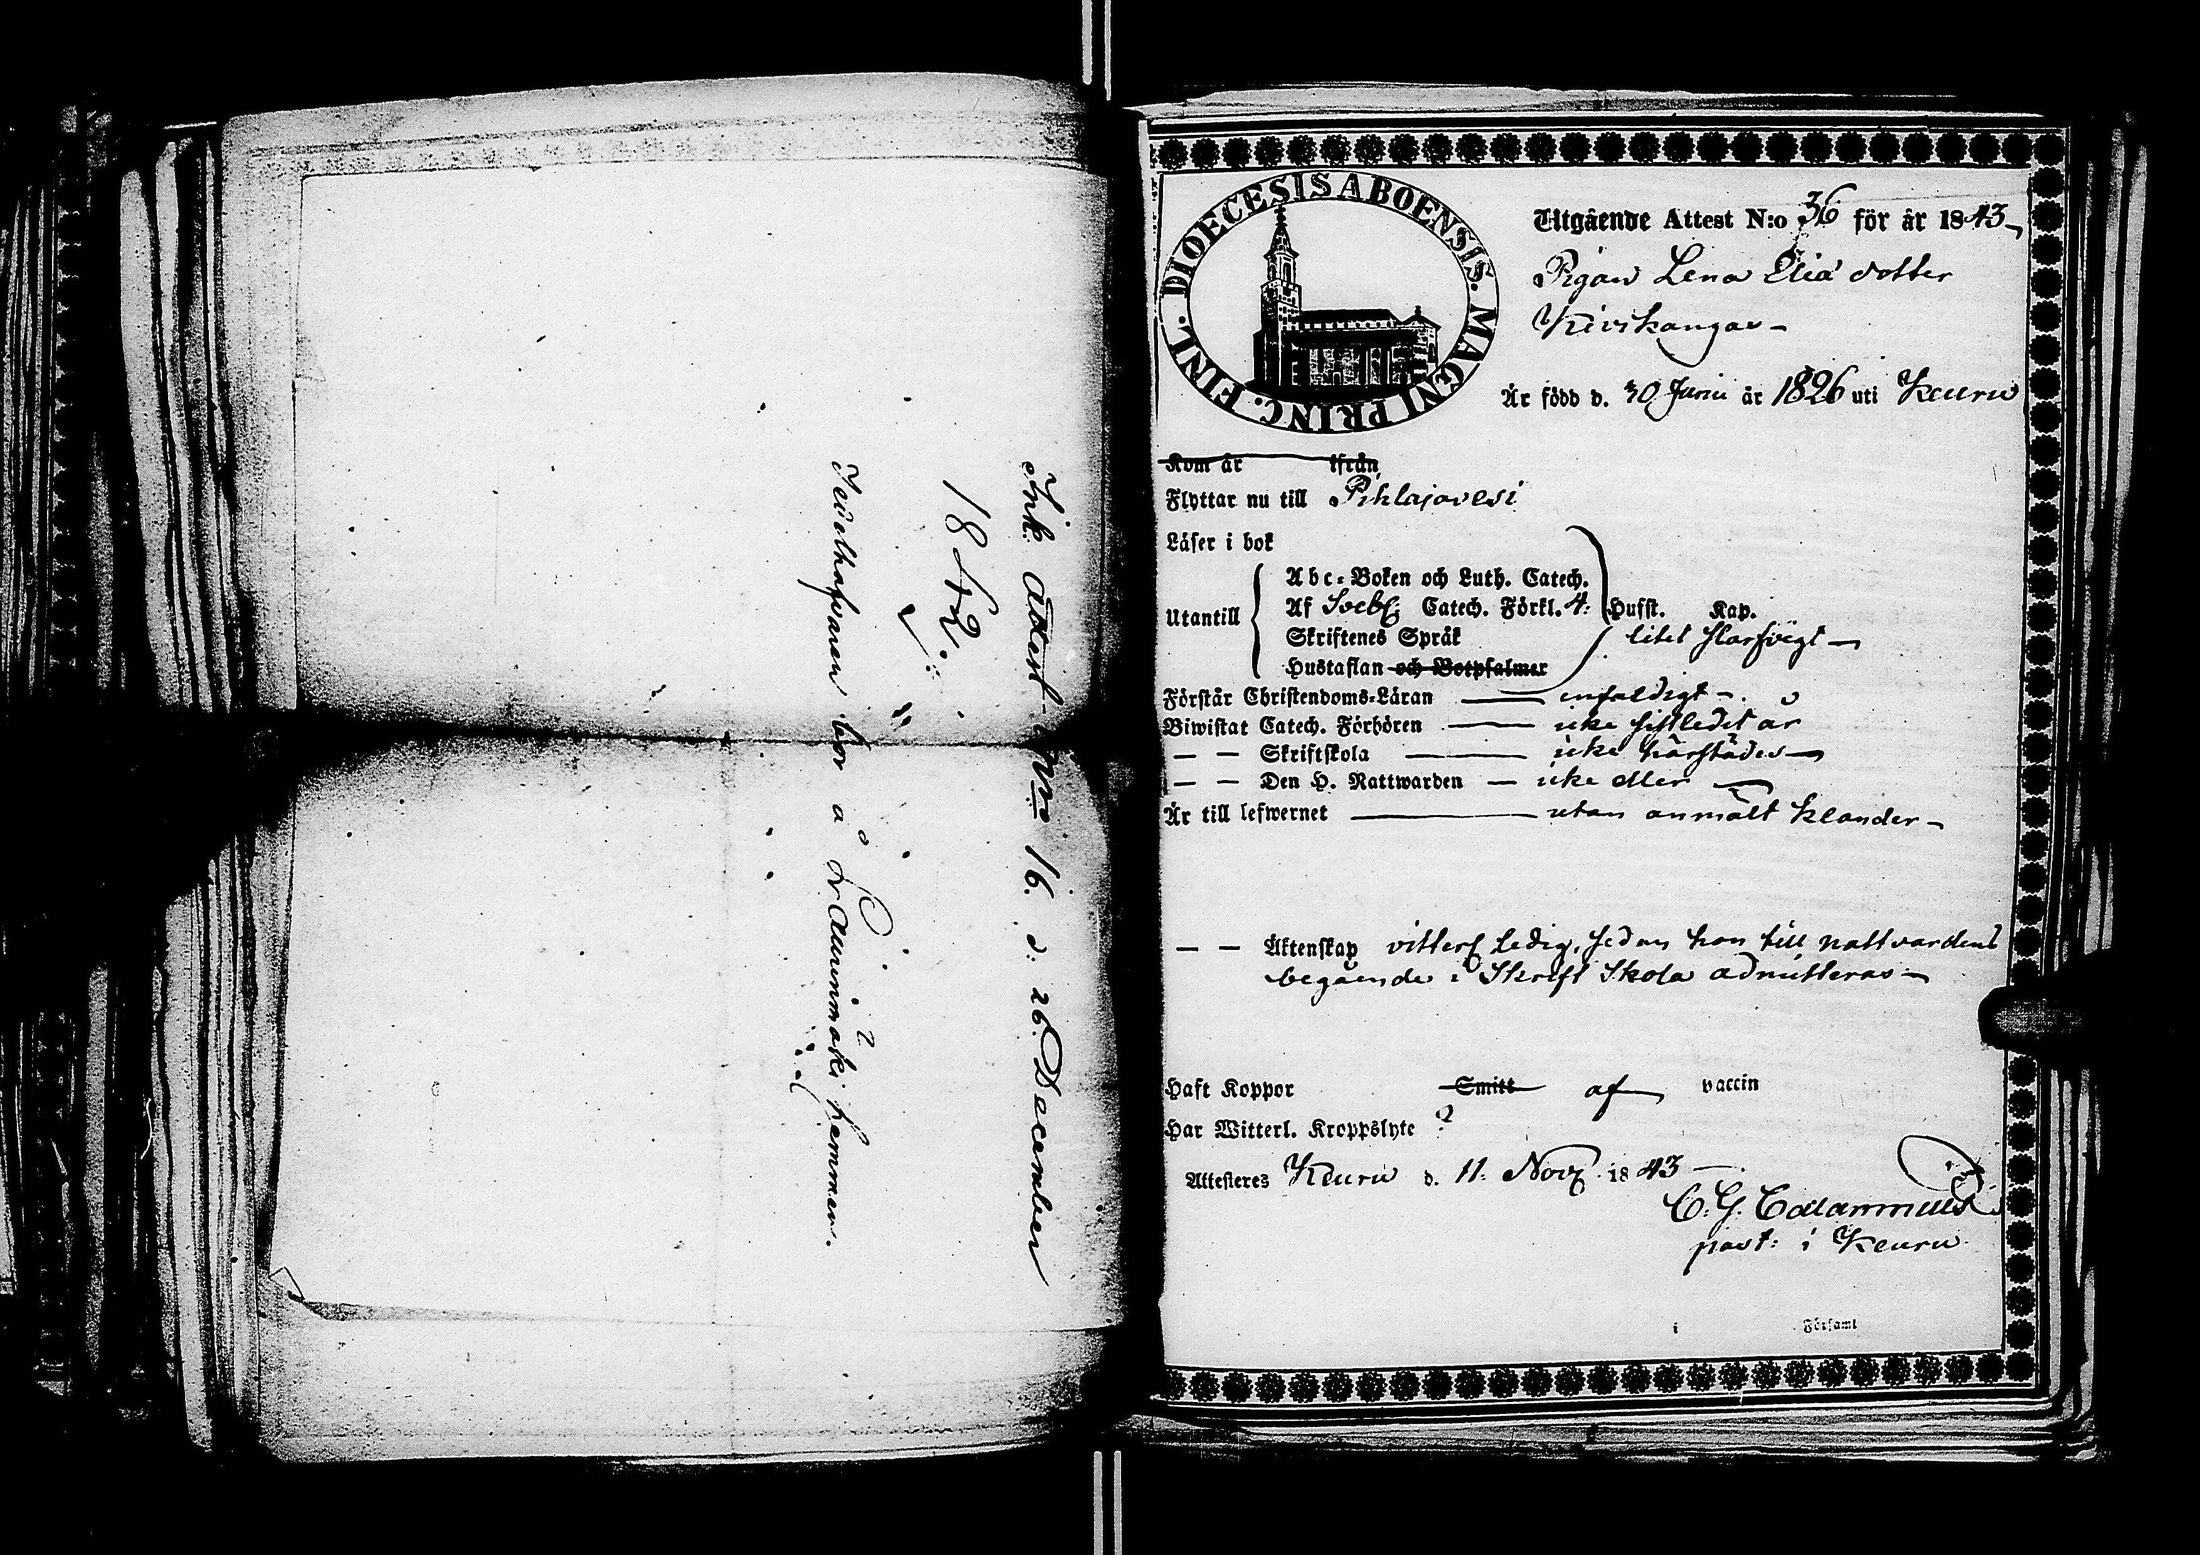 Ink. Attest No 16. d: 26 December
1842.
Sedelhafvaren bor å Raiminmäki hemman.
DIOECESIS ABOENSIS. MAGNI PRINC. FINL.
Utgående Attest N:o 36 för år 1843
Pigan Lena Elia dotter
Kivikangas
Är född d. 30 Junii år 1826 uti Keuru
Kom år ifrån
Flyttar nu till Pihlajavesi
Läser i bok
Abc-Boken och Luth. Catech.
Utantill Af Sveb. Catech. Förkl. 4: Hufst. Kap.
Skriftenes Språk litet slarfvigt
Hustaflan och Botpsalmer
Förstår Christendoms-Läran enfaldigt
Biwistat Catech. Förhören icke sistledit år
— — Skriftskola icke härstädes
— — Den H. Nattwarden — icke eller
Är till lefwernet utan anmält klander
— — Äktenskap vitterl ledig, sedan hon till nattvardens
begående i Skrift Skola admitteras
Haft Koppor Smitt af vaccin
Har Witterl. Kroppslyte ?
Attesteres Keuru d. 11. Nov. 1843
C. G. Calamnius
past: i Keuru
i Församl